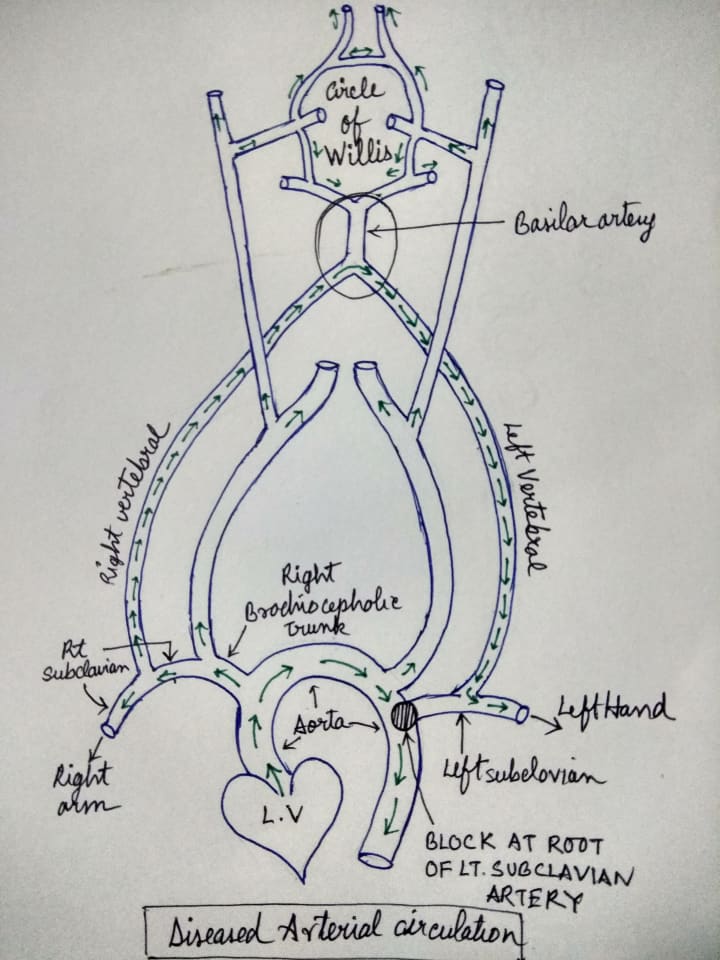 Circle
of
Willis
Basilar artery
Right vertebral
Left Vertebral
Right
Brachiocephalic
trunk
Rt
subclavian
Aorta
Left Hand
Right
arm
L.V
Left subclavian
BLOCK AT ROOT
OF LT. SUBCLAVIAN
ARTERY
Diseased Arterial circulation